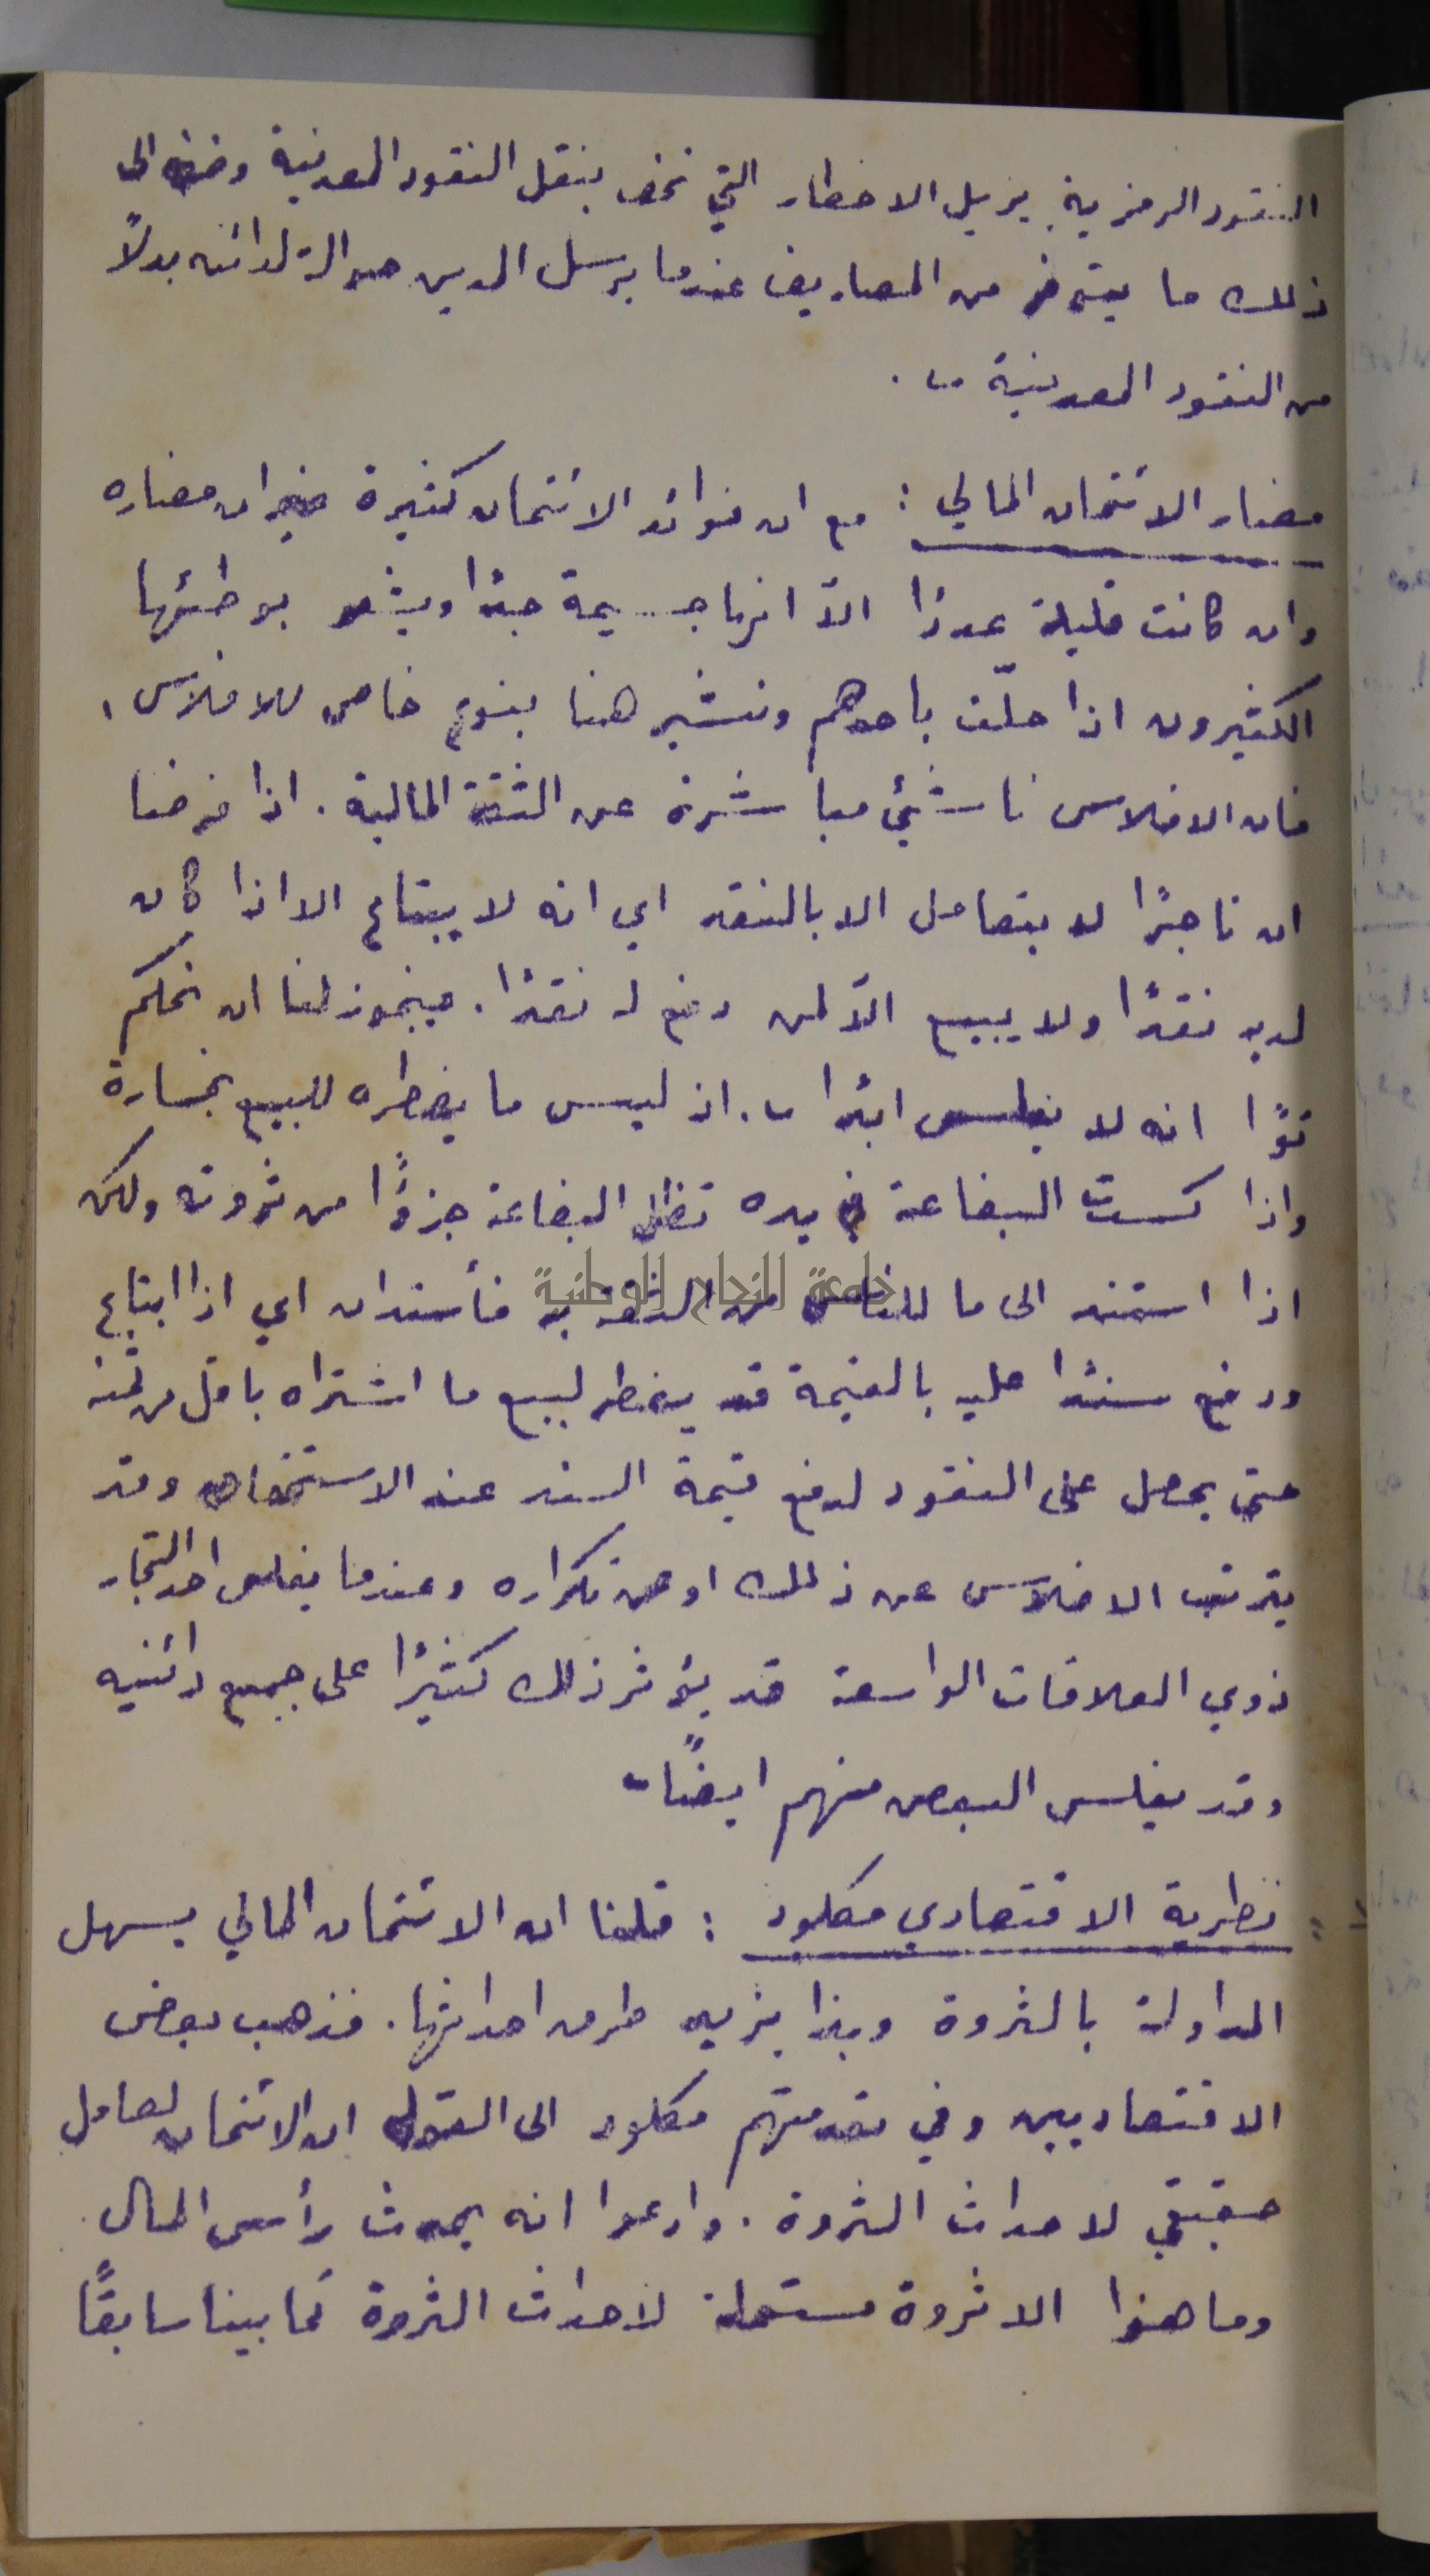 النقود الرمزية يزيل الاخطار التي تحف بنقل النقود المعدنية وضف الى
ذلك ما يتوفر من المصاريف عندما يرسل المدين حوالة لدائنه بدلاً
من النقود المعدنية .
مضار الائتمان المالي : مع ان فوائد الائتمان كثيرة غير ان مضاره
وان كانت قليلة عددًا الاّ انها جسيمة جدًا ويشعر بوطئها
الكثيرون اذا حلّت باحدهم ونشير هنا بنوع خاص للافلاس ،
فان الافلاس ناشئ مباشرة عن الثقة المالية . اذا فرضنا
ان تاجرًا لا يتعامل الا بالنقد اي انه لا يبتاع الا اذا كان
لديه نقدًا ولا يبيع الاّ لمن دفع له نقدًا . فيجوز لنا ان نحكم
توًا انه لا يفلس ابدًا . اذ ليس ما يضطره للبيع بخسارة
واذا كسدت البضاعة في يده تظل البضاعة جزءًا من ثروته ولكن
اذا استند الى ما للناس من الثقة به فأستدان اي اذا ابتاع
جامعة النجاح الوطنية
ودفع سندًا عليه بالقيمة قد يضطر لبيع ما اشتراه باقل من ثمنه
حتى يحصل على النقود لدفع قيمة السند عند الاستحقاق وقد
يترتب الافلاس عن ذلك او عن تكراره وعندما يفلس احد التجار
ذوي العلاقات الواسعة قد يؤثر ذلك كثيرًا على جميع دائنيه
وقد يفلس البعض منهم ايضًا
نظرية الاقتصادي مكلود : قلنا ان الائتمان المالي يسهل
المداولة بالثروة وبذا يزيد طرق احداثها . فذهب بعض
الاقتصاديين وفي مقدمتهم مكلود الى القول ان الائتمان لعامل
حقيقي لاحداث الثروة . وادعوا انه يحدث رأس المال
وما هذا الا ثروة مستعملة لاحداث الثروة كما بينا سابقًا